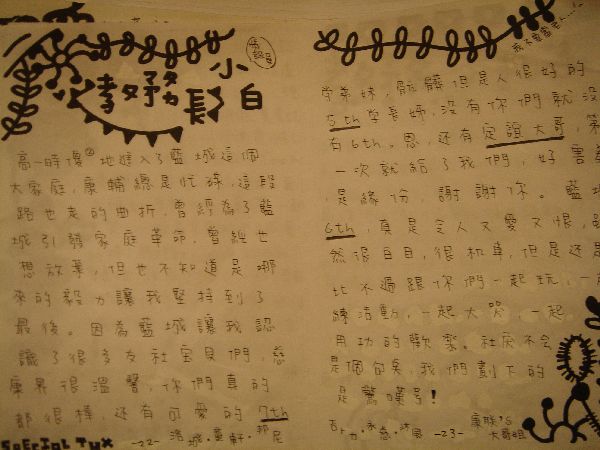 小白
高一時傻②地進入了藍城這個
大家庭,康輔總是忙碌,這段
路也走的曲折,曾經為了藍
城引發家庭革命,曾經也
想放棄,但也不知道是哪
來的毅力讓我堅持到了
最後。因為藍城讓我認
識了很多友社寶貝們,慈
康界很溫馨,你們真的
都很棒,還有可愛的7th
SPECIAL TUX
-22-
學弟妹,骯髒俱是人很好的
5th學長姊,沒有你們就沒
有6th。恩,還有定誼大哥,第
一次就給了我們,好害羞
是緣份,謝謝你。藍城
6th,真是令人又愛又恨,雖
然很白目,很機車但是還是
比不過跟你們一起玩,一起
練活動,一起大哭,一起
用功的歡樂。社庆不會
是個句点,我們劃下的
是驚嘆號!
-23-
康联's
大哥姐